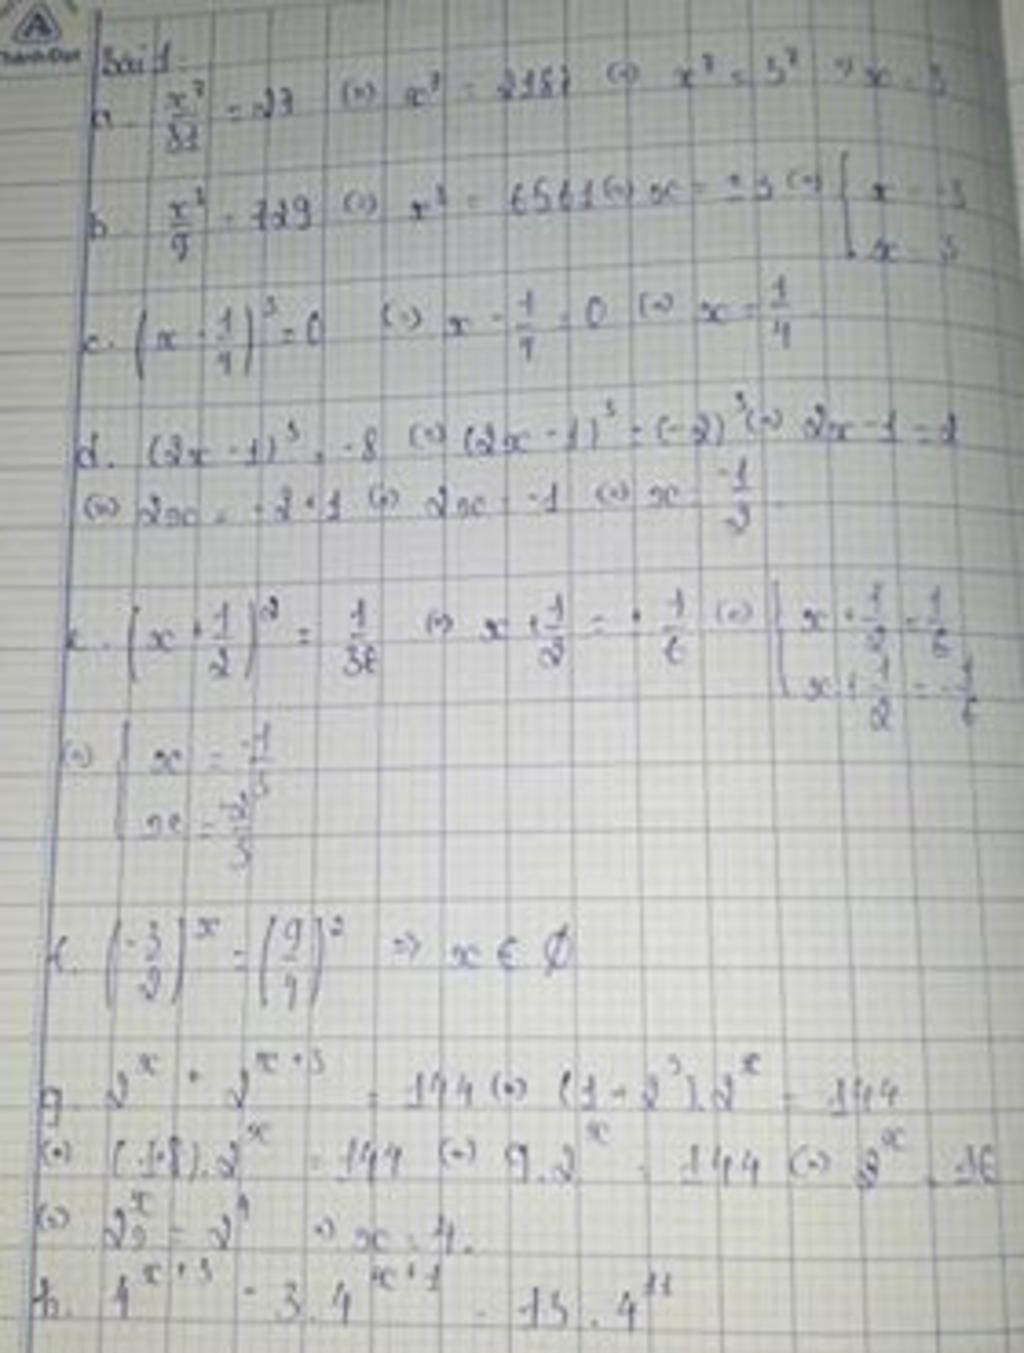 Thành Đạt
Bài 1:
a. x^7/81 = 27 (=) x^7 = 2187 (=) x^7 = 3^7 => x = 3
b. x^8/9 = 729 (=) x^8 = 6561 (=) x = ±3 (=) [ x = -3
x = 3
c. (x - 1/4)^3 = 0 (=) x - 1/4 = 0 (=) x = 1/4
d. (2x - 1)^3 = -8 (=) (2x - 1)^3 = (-2)^3 (=) 2x - 1 = -2
(=) 2x = -2 + 1 (=) 2x = -1 (=) x = -1/2
e. (x + 1/2)^2 = 1/36 (=) x + 1/2 = ± 1/6 (=) [ x + 1/2 = 1/6
x + 1/2 = -1/6
(=) [ x = -1/3
x = -2/3
f. (-3/2)^x = (9/4)^2 => x ∈ Ø
g. 2^x + 2^(x+3) = 144 (=) (1 + 2^3).2^x = 144
(=) (1+8).2^x = 144 (=) 9.2^x = 144 (=) 2^x = 16
(=) 2^x = 2^4 => x = 4.
h. 4^(x+3) - 3.4^(x+1) = 13.4^11